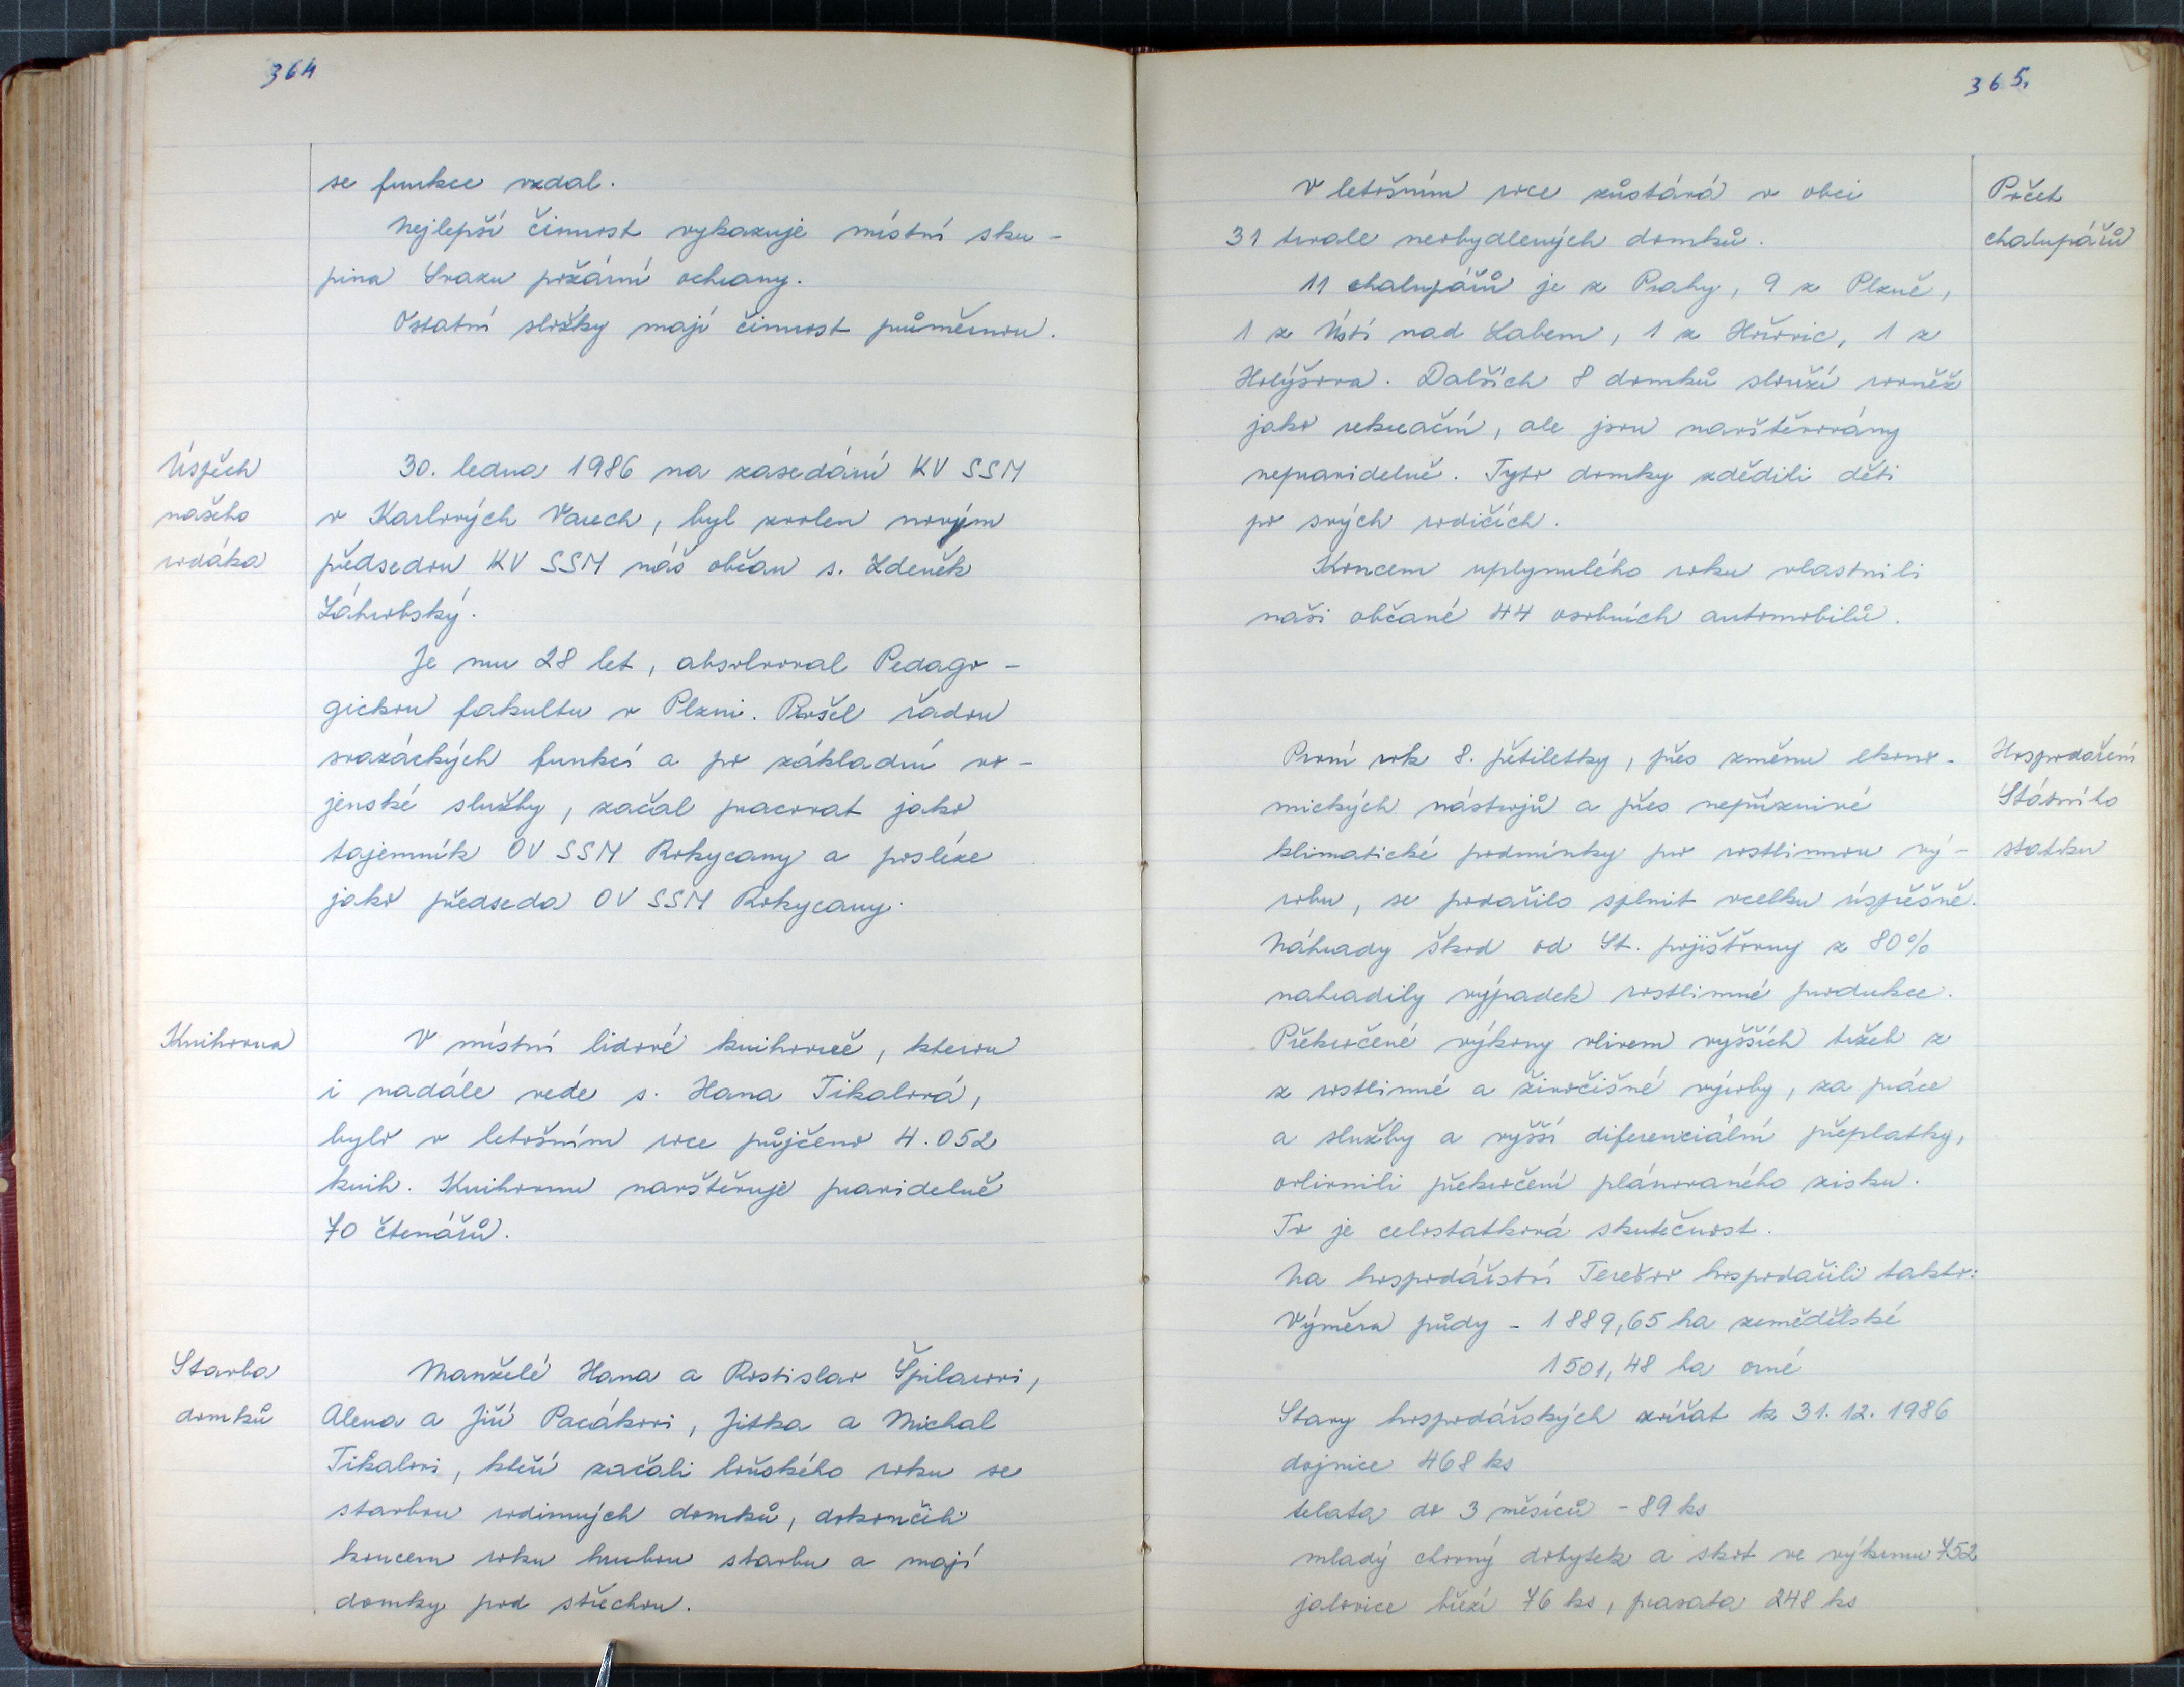 364
se funkce vzdal.
Nejlepší činnost vykazuje místní sku-
pina Svazu požární ochrany.
Ostatní složky mají činnost průměrnou.
Úspěch
našeho
rodáka
30. ledna 1986 na zasedání KV SSM
v Karlových Varech, byl zvolen novým
předsedou KV SSM náš občan s. Zdeněk
Záhrobský.
Je mu 28 let, absolvoval Pedago-
gickou fakultu v Plzni. Prošel řadou
svazáckých funkcí a po základní vo-
jenské služby, začal pracovat jako
tajemník OV SSM Rokycany a posléze
jako předseda OV SSM Rokycany.
Knihovna
V místní lidové knihovně, kterou
i nadále vede s. Hana Tikalová,
bylo v letošním roce půjčeno 4.052
knih. Knihovnu navštěvuje pravidelně
70 čtenářů.
Stavba
domků
Manželé Hana a Rostislav Špilarovi,
Alena a Jiří Pacákovi, Jitka a Michal
Tikalovi, kteří začali loňského roku se
stavbou rodinných domků, dokončili
koncem roku hrubou stavbu a mají
domky pod střechou.
365.
V letošním roce zůstává v obci
31 trvale neobydlených domků.
11 chalupářů je z Prahy, 9 z Plzně,
1 z Ústí nad Labem, 1 z Hořovic, 1 z
Holýšova. Dalších 8 domků slouží rovněž
jako rekreační, ale jsou navštěvovány
nepravidelně. Tyto domky zdědili děti
po svých rodičích.
Koncem uplynulého roku vlastnili
naši občané 44 osobních automobilů.
Počet
chalupářů
První rok 8. pětiletky, přes změnu ekono-
mických nástrojů a přes nepříznivé
klimatické podmínky pro rostlinnou vý-
robu, se podařilo splnit vcelku úspěšně.
Náhrady škod od St. pojišťovny z 80%
nahradily výpadek rostlinné produkce.
Překročené výkony vlivem vyšších tržeb z
z rostlinné a živočišné výroby, za práce
a služby a vyšší diferenciální příplatky,
ovlivnili překročení plánovaného zisku.
To je celostatková skutečnost.
Na hospodářství Terešov hospodařili takto:
Výměra půdy - 1889,65 ha zemědělské
1501,48 ha orné
Stavy hospodářských zvířat k 31.12.1986
dojnice 468 ks
telata do 3 měsíců - 89 ks
mladý chovný dobytek a skot ve výkrmu 752
jalovice březí 76 ks, prasata 248 ks
Hospodaření
Státního
statku